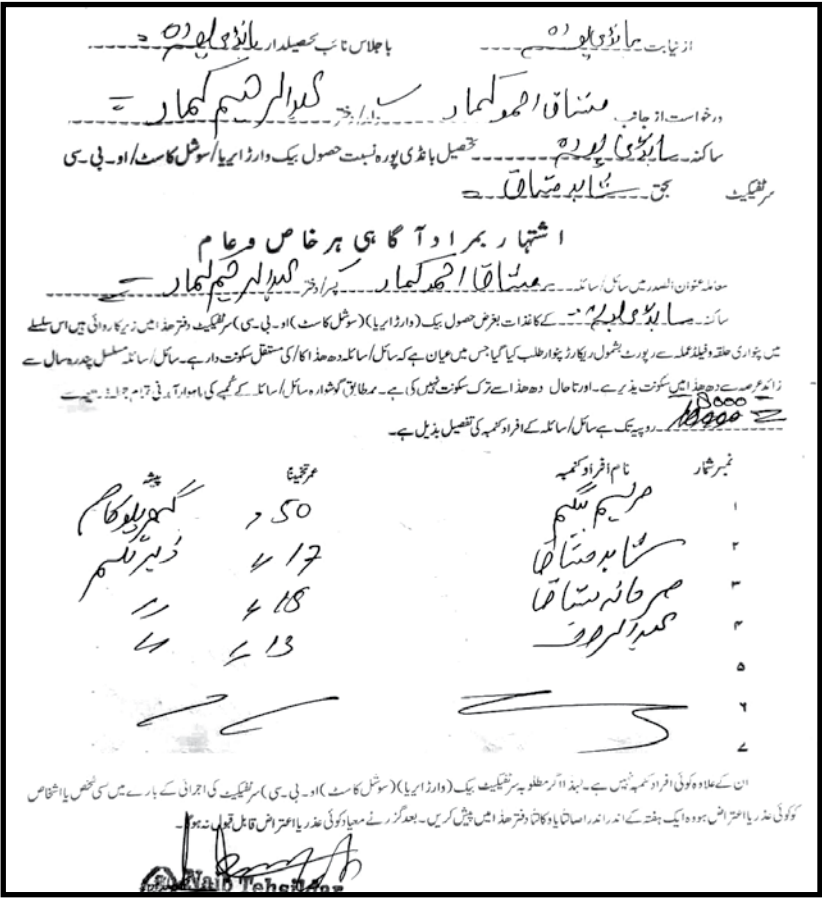 از نیابت بانڈی پورہ باجلاس نائب تحصیلدار بانڈی پورہ
درخواست از جانب مشتاق احمد کمہار ولد/دختر عبدالرحیم کمہار
ساکنہ بانڈی پورہ تحصیل بانڈی پورہ نسبت حصول بیک وارڈ ایریا/سوشل کاسٹ/او۔بی۔سی
سرٹیفکیٹ بحق شاہد مشتاق
اشتہار بمراد آگاہی ہر خاص و عام
معاملہ عنوان الصدر میں سائل/سائلہ مشتاق احمد کمہار پسر/دختر عبدالرحیم کمہار
ساکنہ بانڈی پورہ کے کاغذات بغرض حصول بیک (وارڈ ایریا) (سوشل کاسٹ) (او۔بی۔سی) سرٹیفکیٹ دفتر ھذا میں زیر کاروائی ہیں اس سلسلے
میں پٹواری حلقہ و فیلڈ عملہ سے رپورٹ بشمول ریکارڈ پٹوار طلب کیا گیا جس میں عیاں ہے کہ سائل/سائلہ دھ ھذا کا/کی مستقل سکونت دار ہے۔ سائل/سائلہ مسلسل پندرہ سال سے
زائد عرصہ سے دھ ھذا میں سکونت پذیر ہے۔ اور تا حال دھ ھذا سے ترک سکونت نہیں کی ہے۔ مطابق گوشوارہ سائل/سائلہ کے کنبے کی ماہوار آمدنی تمام
8000
روپیہ تک ہے سائل/سائلہ کے افراد کنبہ کی تفصیل بذیل ہے۔
نمبر شمار نام افراد کنبہ عمر تخمیناً پیشہ
۱ مریم بیگم 50 گھریلو کام
۲ شاہد مشتاق 17 زیر تعلیم
۳ مشتاق 18 〃
۴ عبدالرؤف 13 〃
۵
۶
۷
ان کے علاوہ کوئی افراد کنبہ نہیں ہے۔ لہذا اگر مطلوبہ سرٹیفکیٹ بیک (وارڈ ایریا) (سوشل کاسٹ) (او۔بی۔سی) سرٹیفکیٹ کی اجرائی کے بارے میں کسی شخص یا اشخاص
کو کوئی عذر یا اعتراض ہو وہ ایک ہفتہ کے اندر اندر اصالتاً یا وکالتاً دفتر ھذا میں پیش کریں۔ بعد گزرنے معیاد کوئی عذر یا اعتراض قابل قبول نہ ہوگا۔
Naib Tehsildar